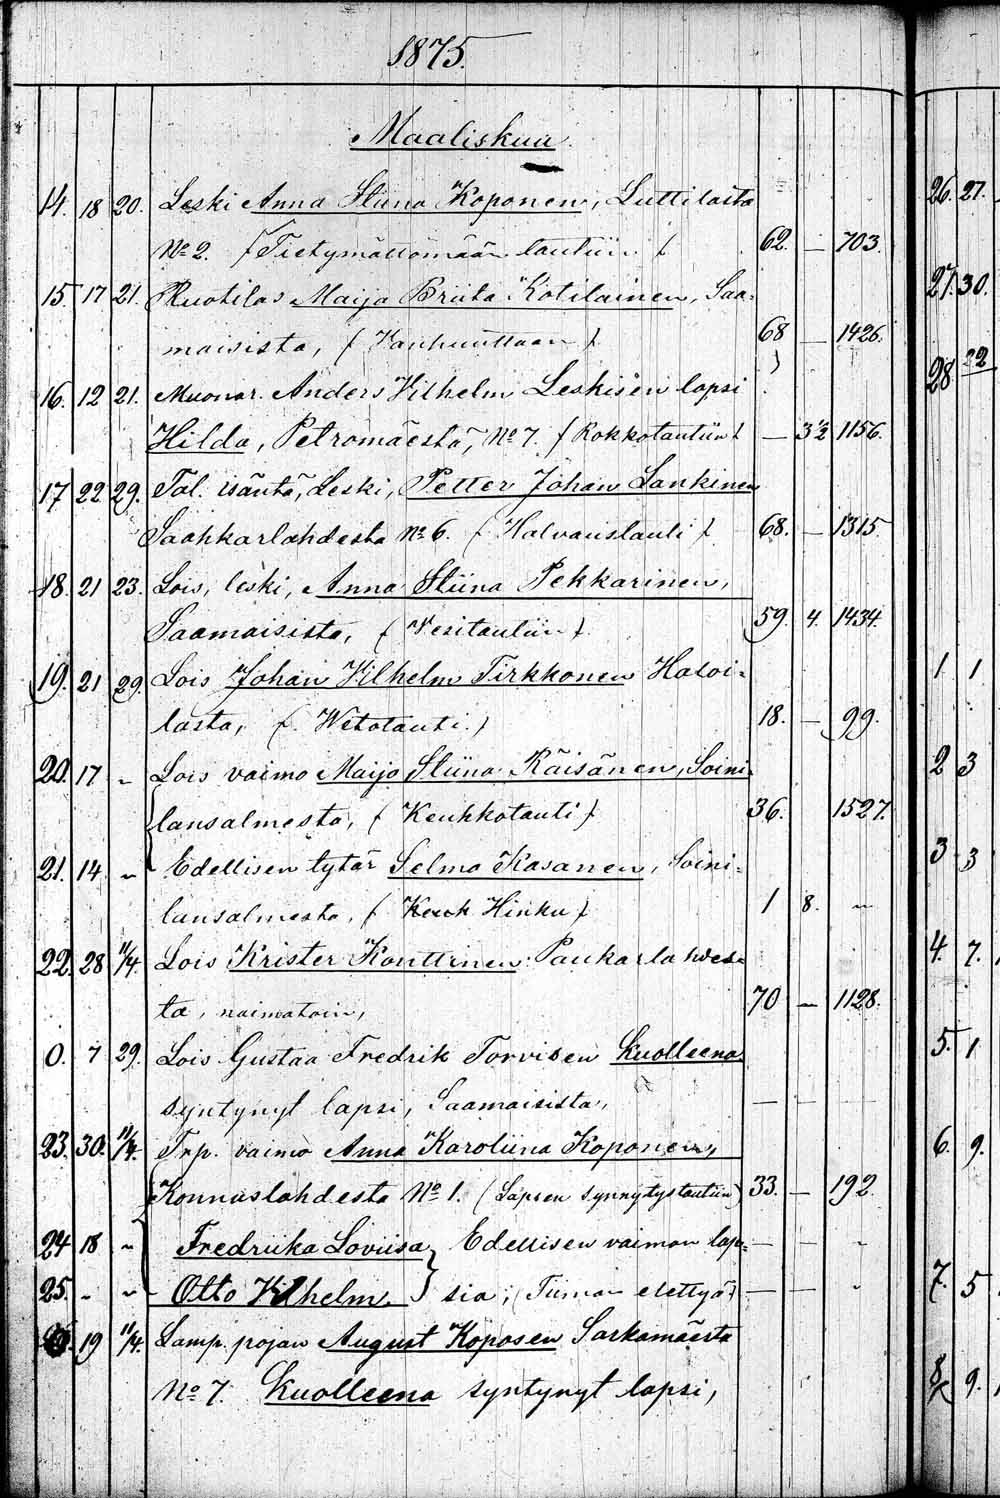 1875.
Maaliskuu
14. 18 20. Leski Anna Stiina Koponen, Luttilasta
No 2. (Tietymättömään tautiin) 62. — 703.
15. 17 21. Ruotilas Maija Briita Kotilainen, Saa-
maisista, (Vanhuuttaan) 68 — 1426.
16. 12 21. Muonar. Anders Vilhelm Leskisen lapsi
Hilda, Petromäestä, No 7. (Rokkotautiin) — 3 1/2 1156.
17 22 29. Tal. isäntä, Leski, Petter Johan Lankinen
Saahkarlahdesta No 6. (Halvaustauti) 68. — 1315
18. 21 23. Lois, leski, Anna Stiina Pekkarinen,
Saamaisista, (Vesitautiin) 59. 4. 1434.
19. 21 29. Lois Johan Vilhelm Tirkkonen Haloi-
lasta, (Wetotauti.) 18. — 99.
20. 17 " Lois vaimo Maija Stiina Räisänen, Soini-
lansalmesta, (Keuhkotauti) 36. 1527.
21. 14 " Edellisen tytär Selma Kasanen, Soini-
lansalmesta, (Keuh Hinku) 1 8. "
22. 28 11/4. Lois Krister Konttinen Paukarlahdes-
ta, naimatoin, 70 — 1128.
0. 7 29. Lois Gustaa Fredrik Torvisen Kuolleena
syntynyt lapsi, Saamaisista, — — —
23. 30. 11/4. Trp. vaimo Anna Karoliina Koponen,
Konnuslahdesta No 1. (Lapsen synnytystautiin) 33. — 192.
24 18 " Fredriika Loviisa Edellisen vaimon lap- — — "
25. " " Otto Vilhelm. sia, (Tiiman elettyä) — — "
19 11/4. Lamp. pojan August Koposen Sarkamäestä
No 7. Kuolleena syntynyt lapsi,
26. 27.
27. 30.
28 22
1 1
2 3
3 3
4. 7.
5. 1
6. 9.
7. 5
8 9.